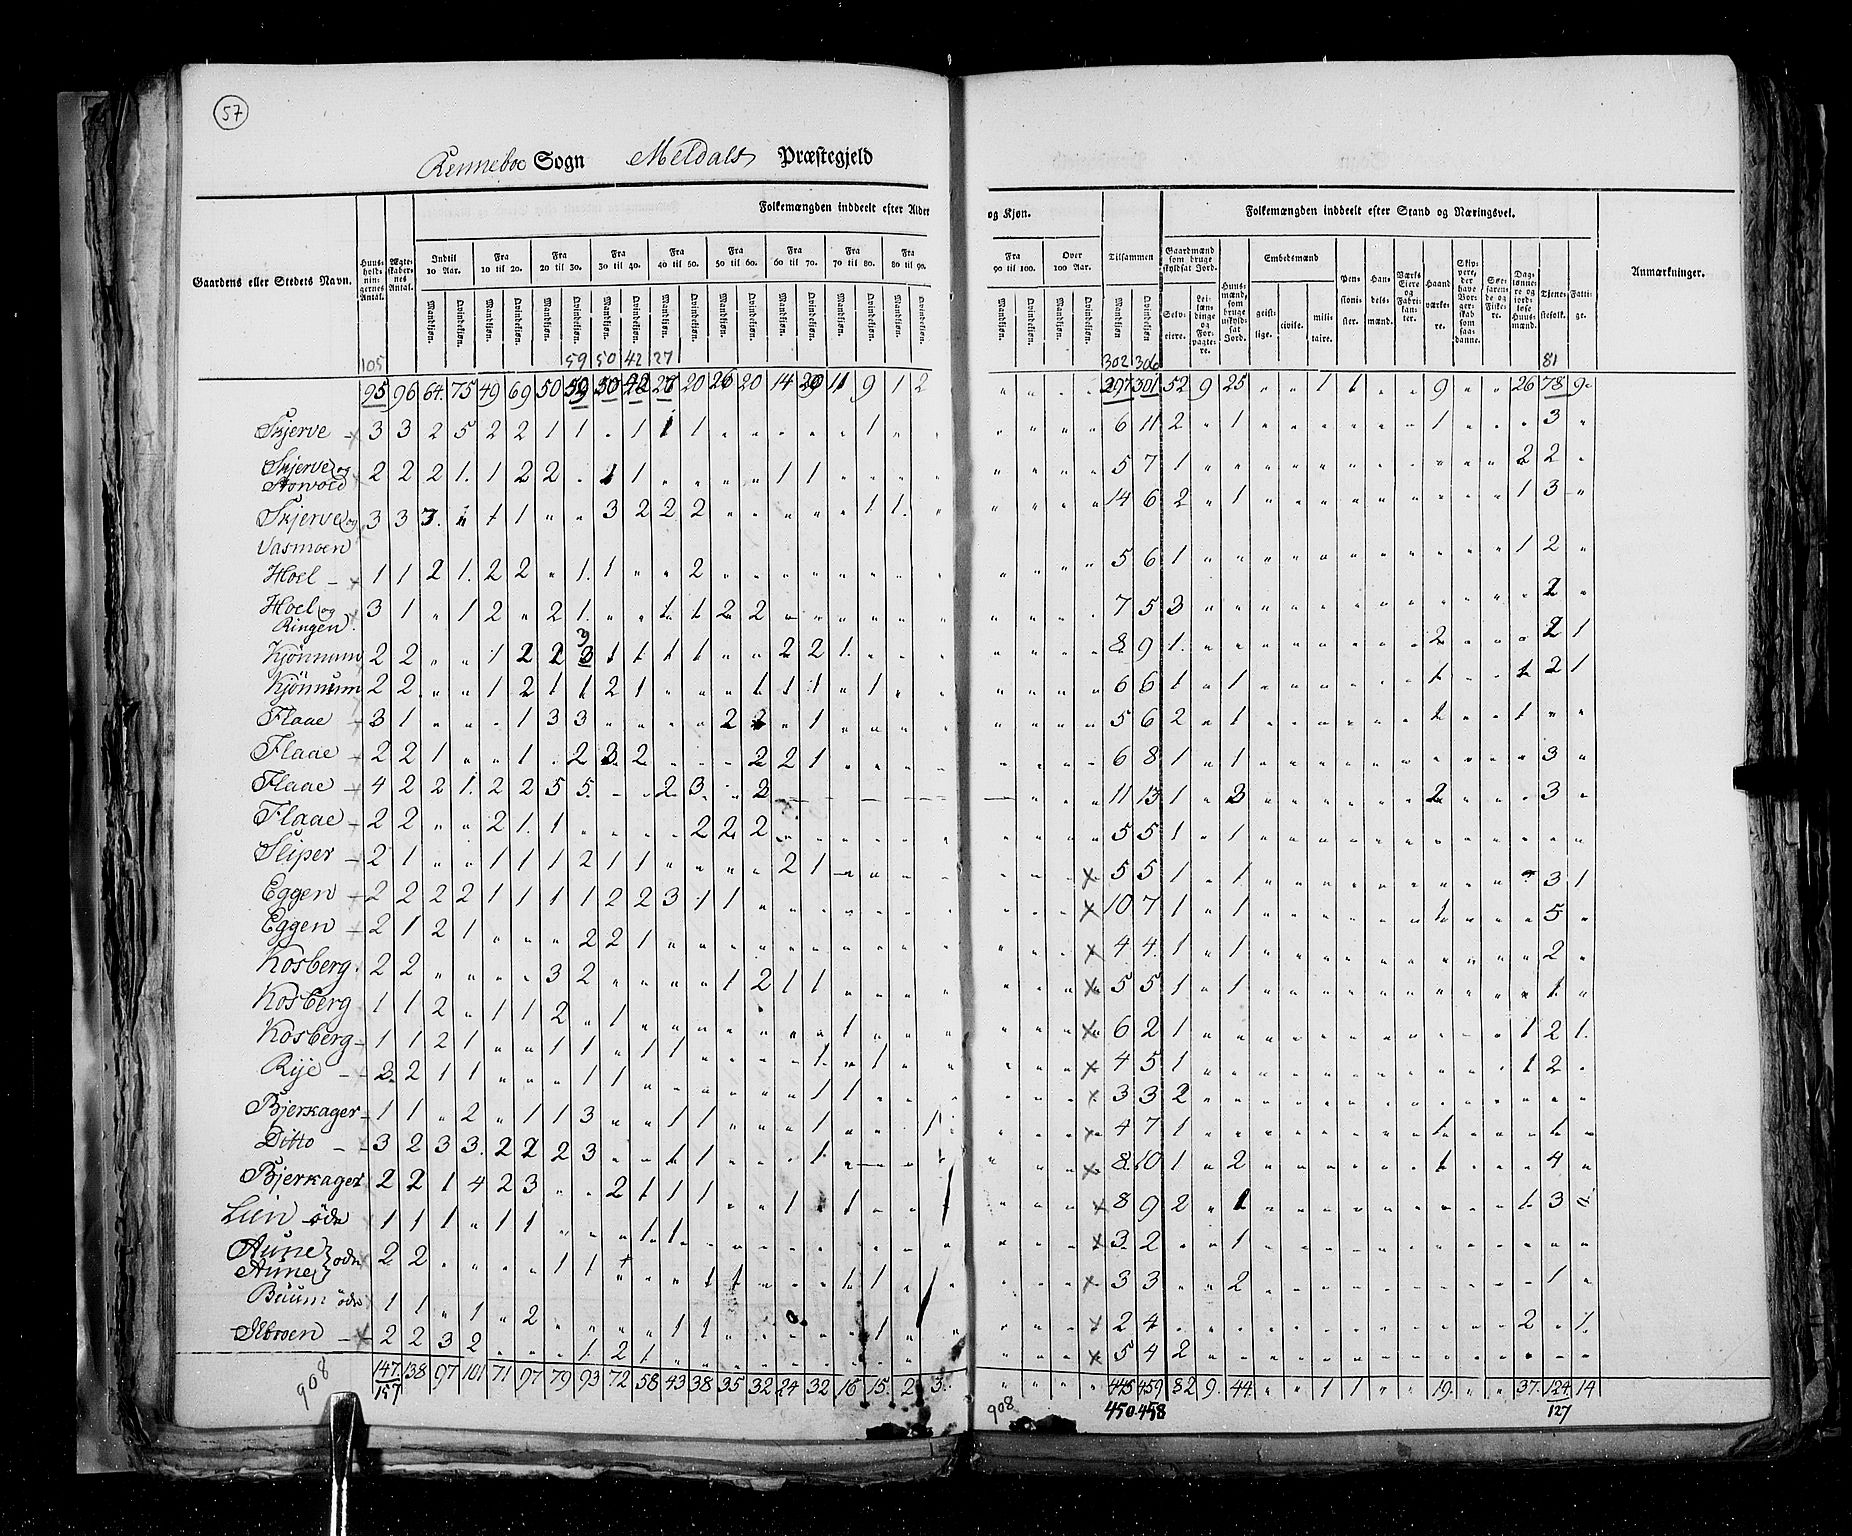 57
Renneboe Sogn Meldals Præstegjeld
Gaardens eller Stedets Navn.
Huus-holdningernes Antal.
Ægteskabernes Antal.
Folkemængden inddeelt efter Alder og Kjøn.
Indtil 10 Aar. Fra 10 til 20. Fra 20 til 30. Fra 30 til 40. Fra 40 til 50. Fra 50 til 60. Fra 60 til 70. Fra 70 til 80. Fra 80 til 90. Fra 90 til 100. Over 100 Aar. Tilsammen
Mandkjøn. Qvindekjøn.
Folkemængden inddeelt efter Stand og Næringsvei.
Gaardmænd som bruge skyldsat Jord.
Selveiere. Leilændinge og Forpagtere.
Huusmænd, som bruge uskyldsat Jord.
Embedsmænd
geistlige. civile. militaire.
Pensionister. Handelsmænd. Værks Eiere og Fabrikanter. Haandværkere. Skippere, der have Borgerskab som saadanne. Søefarende og Fiskere. Daglønnere og jordløse Huusmænd. Tjenestefolk. Fattige.
Anmærkninger.
105 59 50 42 27 302 306 81
95 96 64 75 49 69 50 59 50 42 27 20 26 20 14 20 11 9 1 2 " " " " 297 301 52 9 25 " " 1 1 " " 9 " " 26 78 9
Skjerve 3 3 2 5 2 2 1 1 " 1 1 1 " " " " " 1 " " " " " " 6 11 2 " 1 " " " " " " 1 " " " 3 "
Skjerve og Storvold 2 2 2 1 1 2 2 " 1 1 " " " " 1 1 " " " " " " " " 5 7 1 " " " " " " " " " " " 2 2 "
Skjerve og Vasmoen 3 3 3 " 1 1 " " 3 2 2 2 " " " " " 1 1 " " " " " 14 6 2 " 1 " " " " " " " " " 1 3 "
Hoel 1 1 2 1 2 2 " 1 1 " " 2 " " " " " " " " " " " " 5 6 1 " " " " " " " " " " " 1 2 "
Hoel og Ringen 3 1 " 1 2 " 2 1 " " 1 1 2 2 " " " " " " " " " " 7 5 3 " " " " " " " " " " " " 2 "
Kjönnum 2 2 " " 1 2 2 3 1 1 1 1 " " 2 2 1 " " " " " " " 8 9 1 " " " " " " " " 2 " " " 2 1
Kjönnum 2 2 " " 1 2 1 1 2 1 " " " 1 1 1 " 1 " " " " " " 6 6 1 " 1 " " " " " " 1 " " 1 2 1
Flaae 3 1 " " " 1 3 3 " " " " 2 2 " 1 " " " " " " " " 5 6 2 " 1 " " " " " " 1 " " 1 " "
Flaae 2 2 1 " " 1 " 2 3 2 " " " 2 2 1 " " " " " " " " 6 8 1 " 1 " " " " " " " " " " 3 "
Flaae 4 2 2 1 2 2 5 5 " " 2 3 " 2 " " " " " " " " " " 11 13 1 " 3 " " " " " " 2 " " " 3 "
Flaae 2 2 " " 2 1 1 " " " " 2 2 2 " " " " " " " " " " 5 5 1 " 1 " " " " " " " " " " " "
Sliper 2 1 " " 1 1 1 2 1 1 " " " " 2 1 " " " " " " " x 5 5 1 " 1 " " " " " " " " " " 3 1
Eggen 2 2 2 2 1 1 1 1 2 2 3 1 1 " " " " " " " " " " x 10 7 1 " 1 " " " " " " 1 " " " 5 "
Eggen 2 1 2 1 " " " 2 2 1 " " " " " " " " " " " " " x 4 4 1 " 1 " " " " " " " " " " 2 "
Kosberg 2 2 " " " " 3 2 " " " " 1 2 1 1 " " " " " " " x 5 5 1 " 1 " " " " " " " " " " 1 "
Kosberg 1 1 2 " 1 1 2 " 1 " " " " " " " 1 " " " " " " x 6 2 1 " " " " " " " " " " " 1 2 1
Kosberg 1 1 2 1 " " 1 1 " 1 1 " " " " 1 " 1 " " " " " x 4 5 1 " " " " " " " " " " " 1 2 "
Rije 2 2 1 1 " " " 1 1 " " " " " " 1 1 " " " " " " x 3 3 2 " " " " " " " " " " " " " "
Bjerkager 1 1 " 2 " 1 1 3 " " 1 1 " " " 1 " " " 1 " " " x 4 7 1 " " " " " " " " 1 " " " 1 "
Ditto 3 2 3 3 2 2 2 3 " " 1 1 " " " 1 " " " " " " " x 8 10 1 " 2 " " " " " " 1 " " " 4 "
Bjerkager 2 2 1 4 2 3 " " 2 1 1 1 " " 1 " 1 " " " " " " x 8 9 2 " 1 " " " " " " " " " 1 3 "
Lien öde 1 1 1 " 1 1 " " " 1 1 " " " " " " " " " " " " x 3 2 " " 1 " " " " " " " " " " " "
Aune Aune öde 2 2 " " " " 1 1 " " " 1 1 " " " 1 1 " " " " " x 3 3 " " 2 " " " " " " " " " " 1 "
Buum öde 1 1 " 1 " 2 " " " " 1 1 " " " " " 1 " " " " " x 2 4 " " " " " " " " " " " " 2 " 1
Ilbroen 2 2 3 2 " " " 1 2 1 " " " " " " " " " " " " " x 5 4 2 " " " " " " " " " " " " " "
147 138 97 101 71 97 79 93 72 58 43 38 35 32 24 32 16 15 2 3 " " " " 445 459 82 9 44 " " 1 1 " " 19 " " 37 124 14
908 157 908 450 458 127